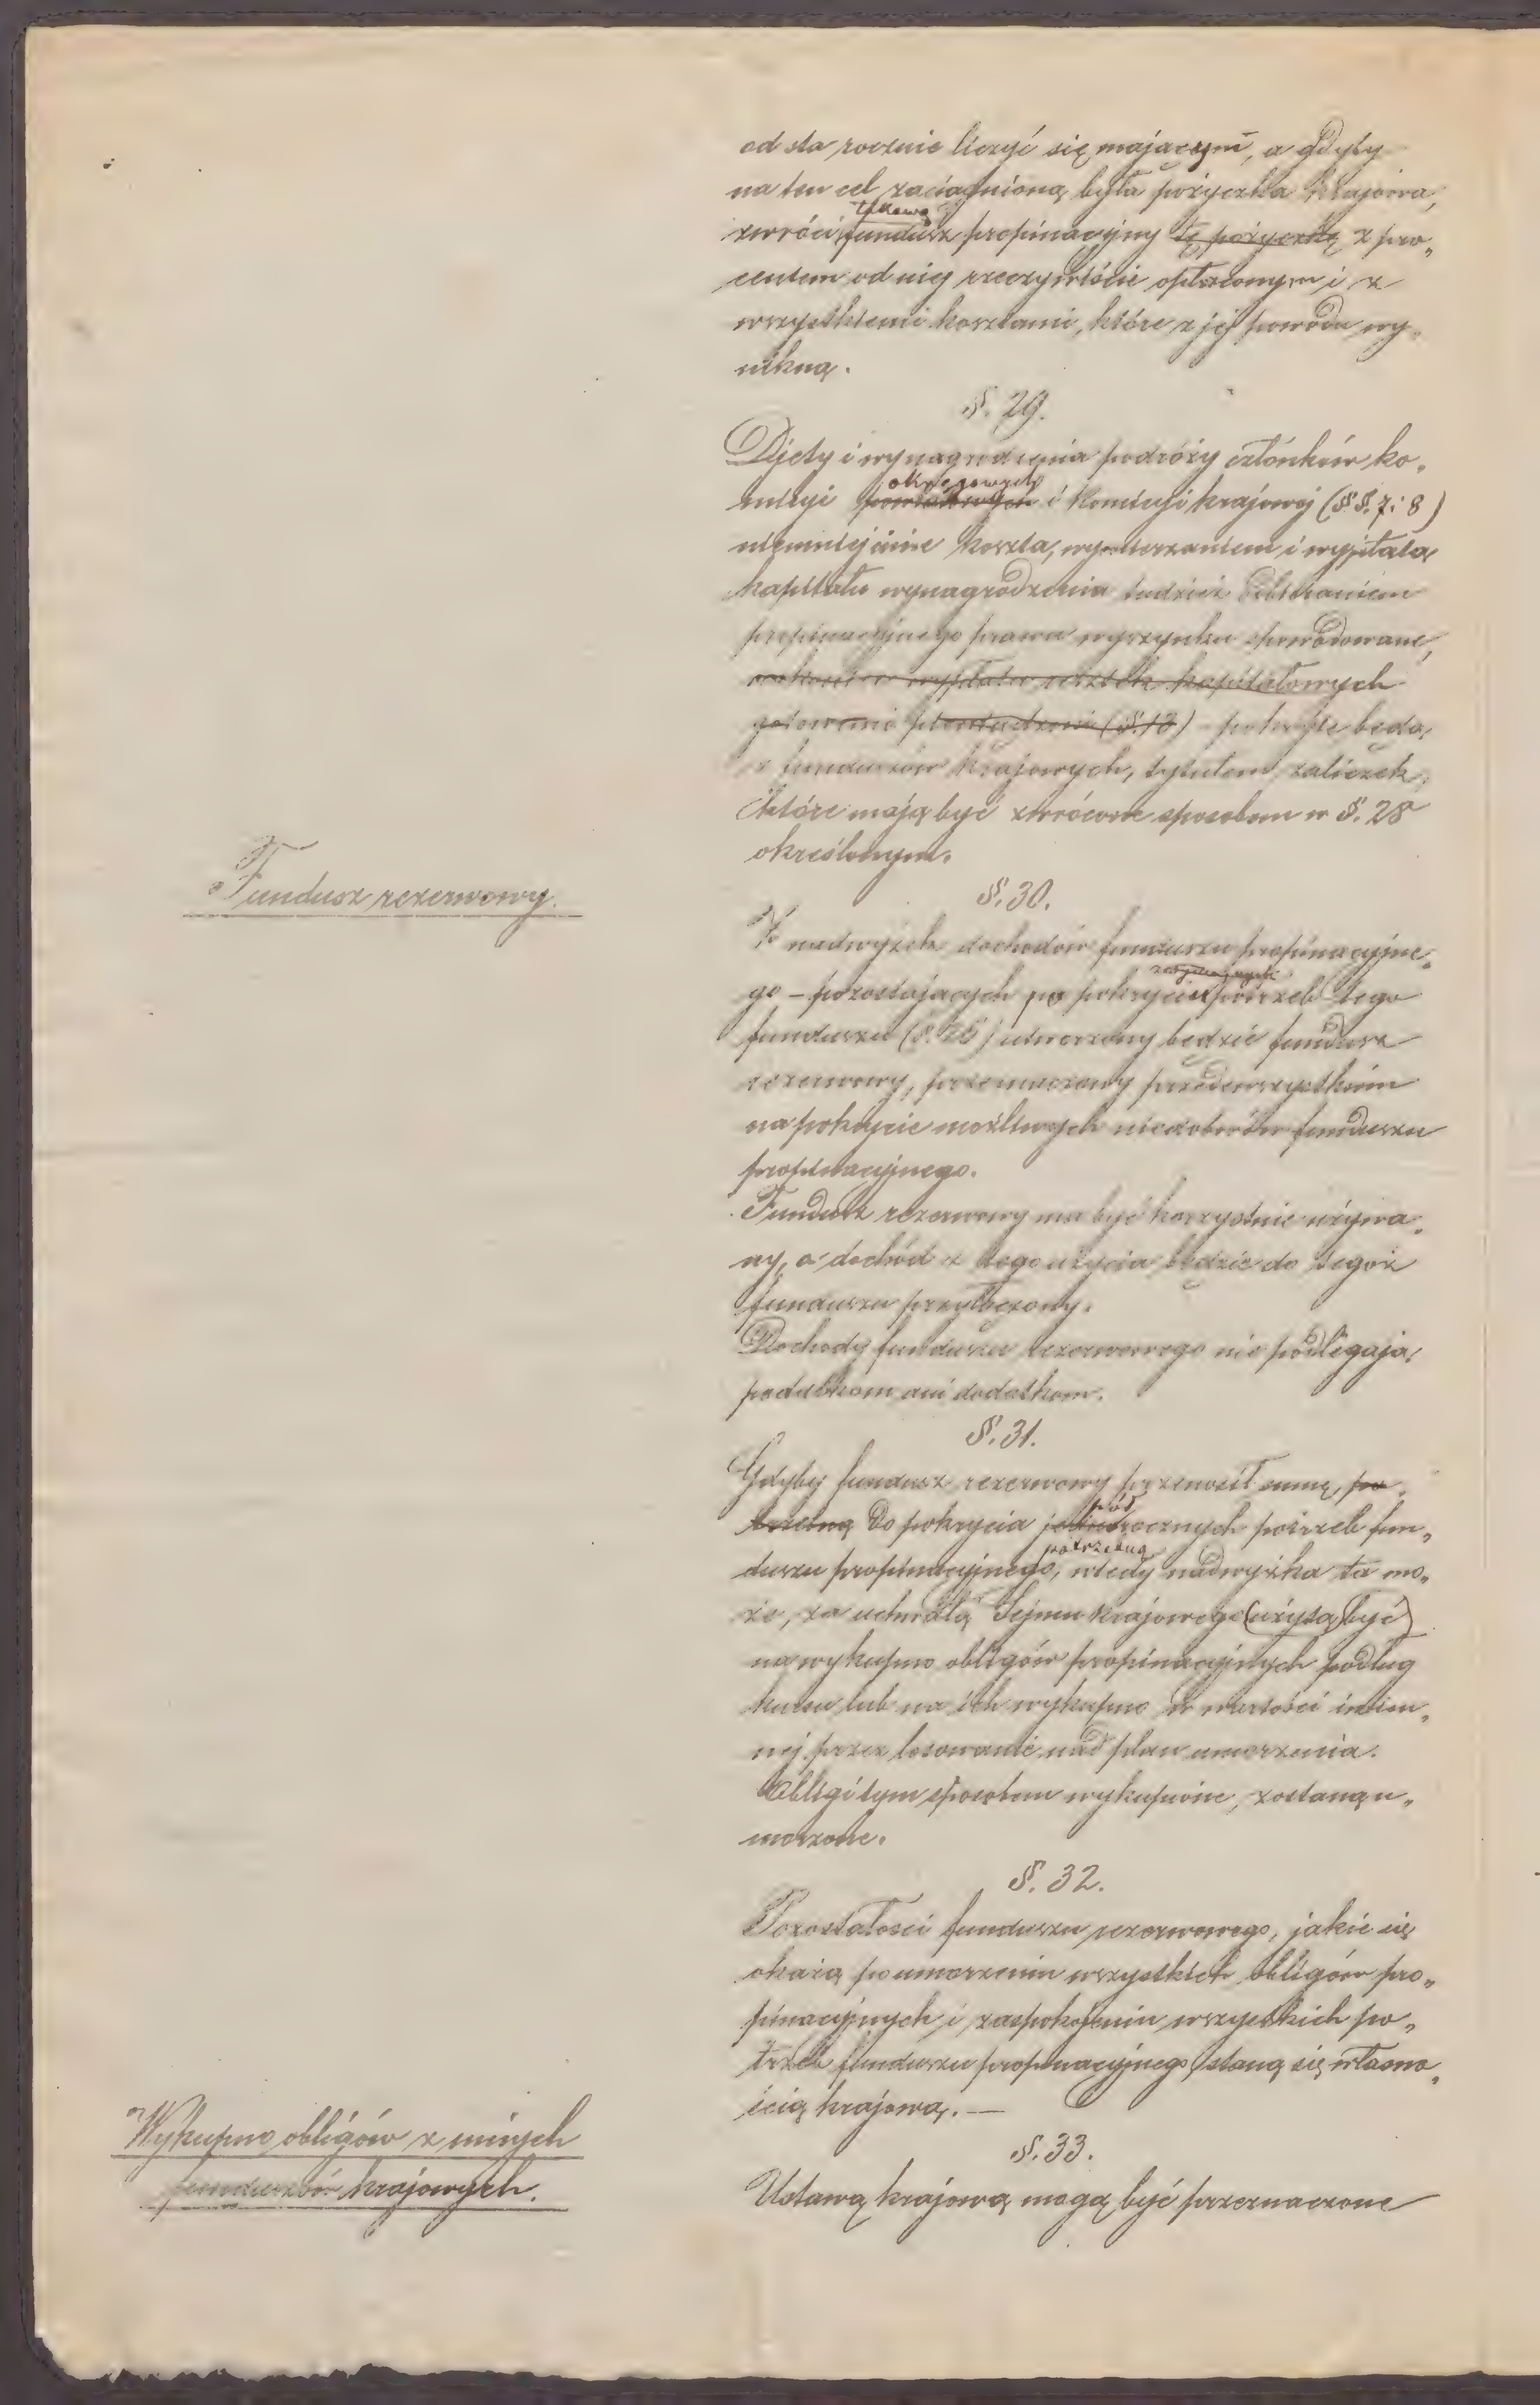 od sta rocznie liczyć się mającym, a gdyby
na ten cel zaciągnioną była pożyczka krajowa,
takową
zwróci fundusz propinacyjny tę pożyczkę z pro„
centem od niej rzeczywiście opłaconym i z
wszystkiemi kosztami, które z jej powodu wy„
nikną.
§. 29.
Djety i wynagrodzenia podróży członków ko„
okręgowych
misyi powiatowych i Komisyi krajowej (§§. 7 i 8)
niemniej inne koszta, wymierzaniem i wypłatą
kapitału wynagrodzenia tudzież
propinacyjnego prawa wyszynku spowodowane,
wypłata resztek kapitałowych
gotowemi pieniądzmi (§. 13) – pokryte będą
z funduszów krajowych, tytułem zaliczek,
które mają być zwrócone sposobem w §. 28
określonym.
Fundusz rezerwowy.
§. 30.
Z nadwyżek dochodów funduszu propinacyjne„
go – pozostających po pokryciu potrzeb tego
funduszu (§. 26) utworzony będzie fundusz
rezerwowy, przeznaczony przedewszystkiem
na pokrycie możliwych niedoborów funduszu
propinacyjnego.
Fundusz rezerwowy ma być korzystnie używa„
ny, a dochód z tego użycia będzie do tegoż
funduszu przyłączony.
Dochody funduszu rezerwowego nie podlegają
podatkom ani dodatkom.
§. 31.
Gdyby fundusz rezerwowy przenosił sumę po„
pół
trzebną do pokrycia jednorocznych potrzeb fun„
potrzebną
duszu propinacyjnego, wtedy nadwyżka ta mo„
że, za uchwałą Sejmu krajowego (użytą być)
na wykupno obligów propinacyjnych podług
kursu lub na ich wykupno w wartości imien„
nej przez losowanie nad plan umorzenia.
Obligi tym sposobem wykupione, zostaną u„
morzone.
§. 32.
Pozostałości funduszu rezerwowego, jakie się
okażą po umorzeniu wszystkich obligów pro„
pinacyjnych i zaspokojeniu wszystkich po„
trzeb funduszu propinacyjnego, staną się własno„
ścią krajową. —
Wykupno obligów z innych
funduszów krajowych.
§. 33.
Ustawą krajową mogą być przeznaczone